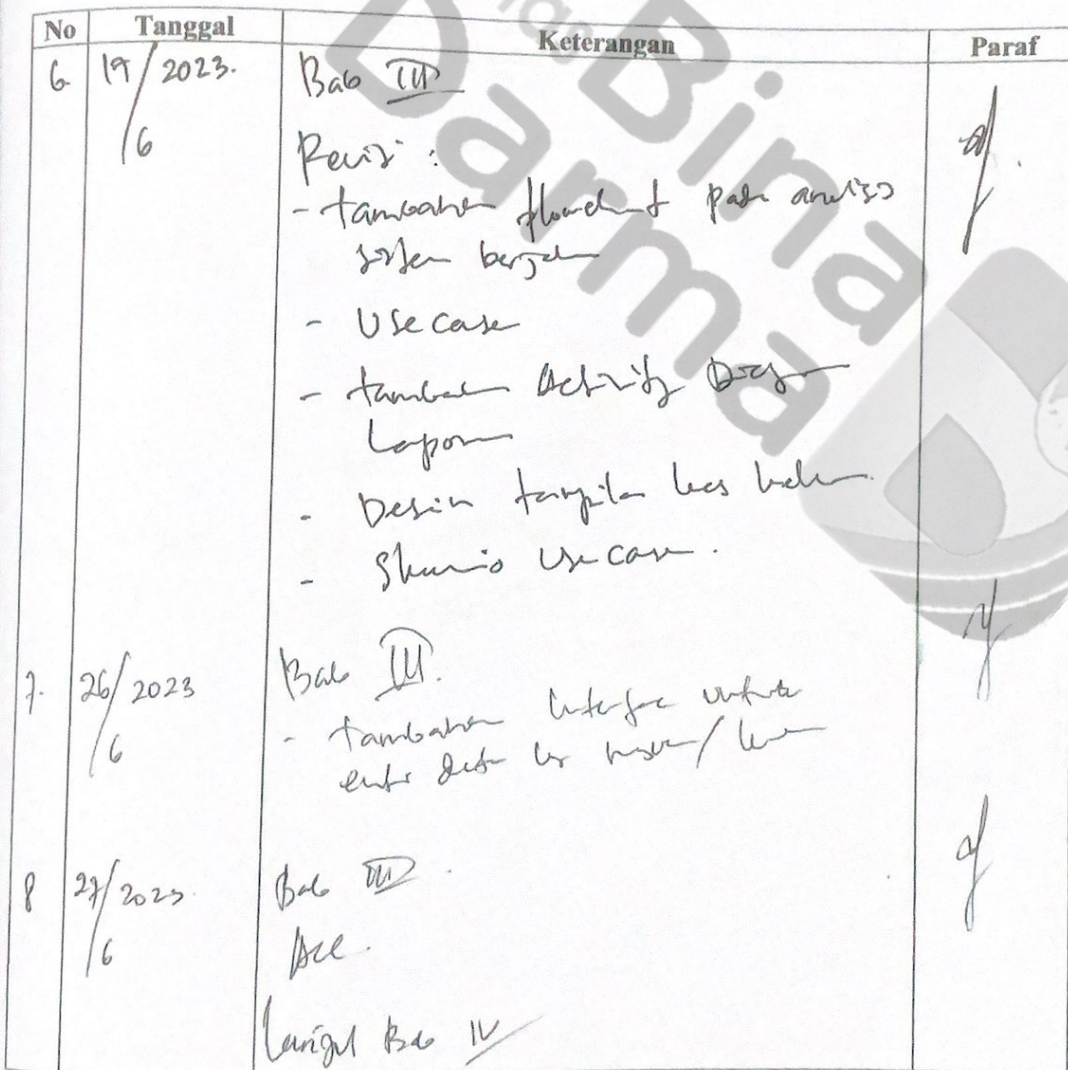 Bina
Darma
No Tanggal Keterangan Paraf
6. 19/6 2023. Bab III
Revisi :
- tambahan flowchart pada analisa
sistem berjalan
- Use case
- tambahan Activity Diagram
Laporan
- Desain tampilan kas
- Skenario Use case.
7. 26/6 2023 Bab III.
- tambahan interface untuk
entri data kas
8 27/6 2023 Bab III.
Acc.
Lanjut Bab IV